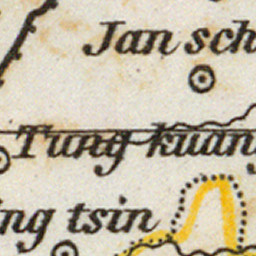 Jan sch
Tung kuang
ng tsin